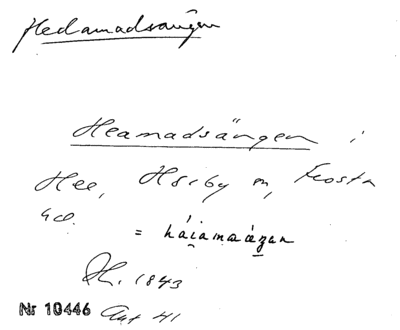 Hedamadsängen
Heamadsängen i
Hee, Hörby sn, Frosta
hd.
= hái̯amaázan
Rh. 1843
Nr 10446 Aut 41